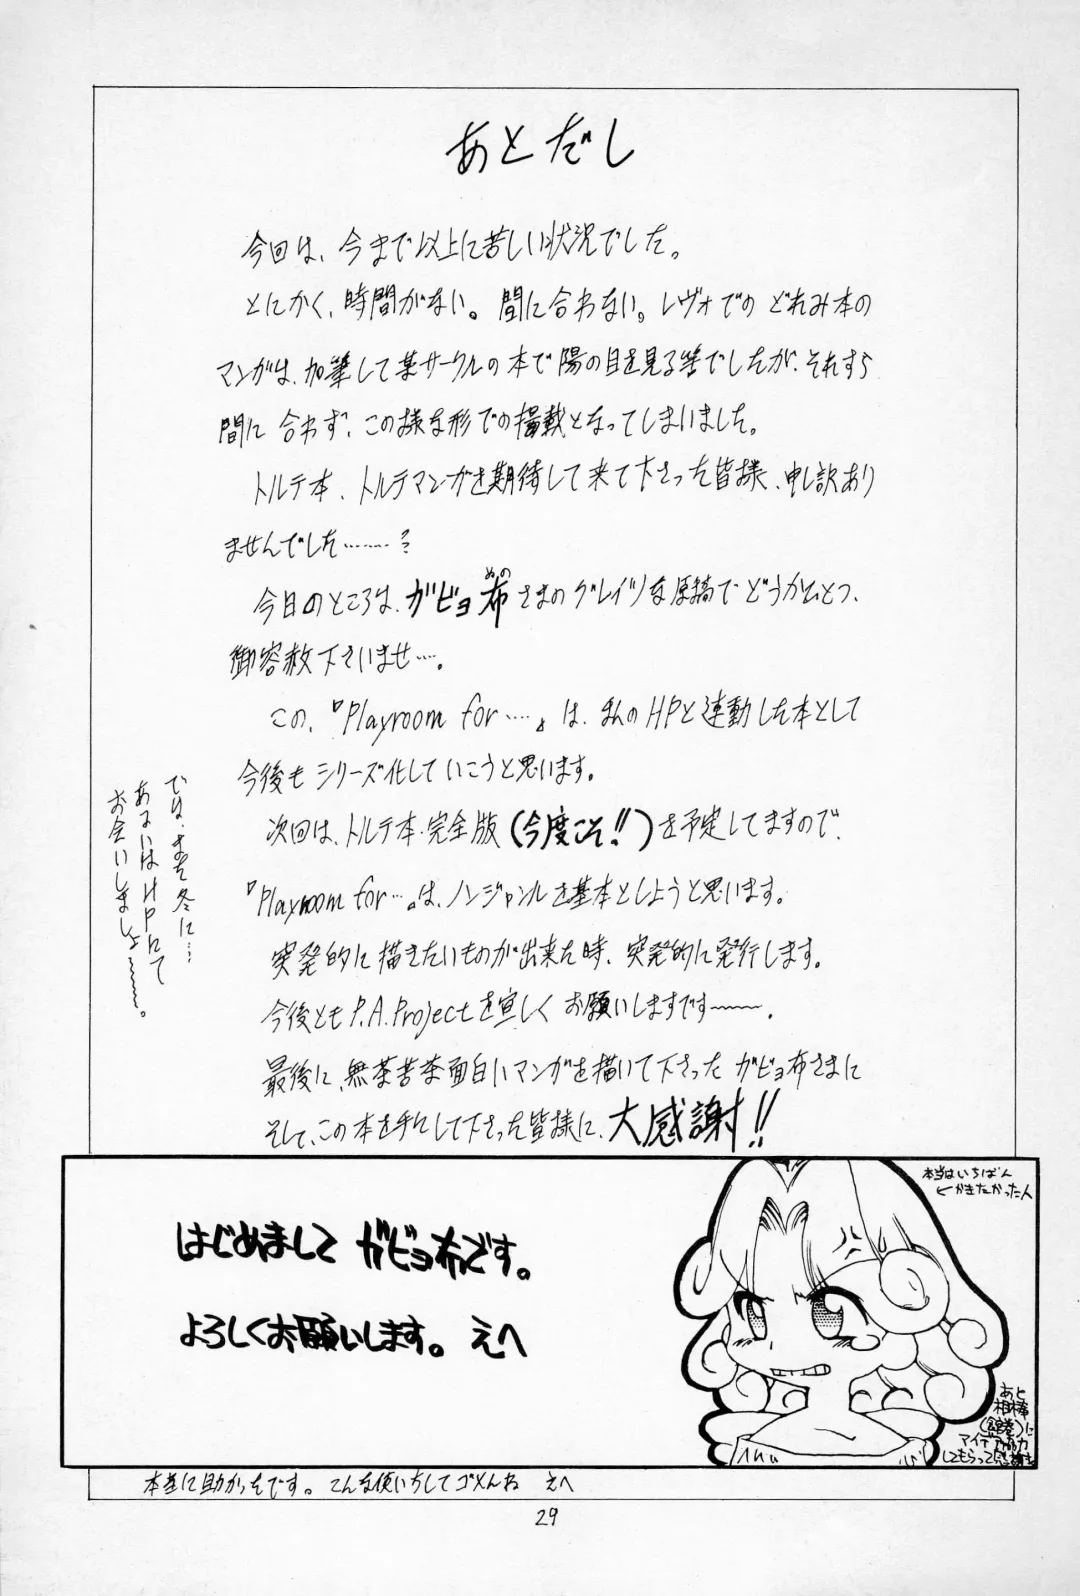 あとだし
今回は、今まで以上に苦しい状況でした。
とにかく、時間がない。間に合わない。レヴォでの どれみ本の
マンガは、加筆して某サークルの本で陽の目を見る筈でしたが、それすら
間に合わず、この様な形での掲載となってしまいました。
トルテ本、トルテマンガを期待して来て下さった皆様、申し訳あり
ませんでした……?
今日のところは、ガビョ布さまのグレイツな原稿でどうかひとつ、
ぬの
御容赦下さいませ…。
この、『Playroom for……』は、私のHPと連動した本として
今後もシリーズ化していこうと思います。
次回は、トルテ本・完全版(今度こそ!!)を予定してますので、
『Playroom for…』は、ノンジャンルを基本としようと思います。
突発的に描きたいものが出来た時、突発的に発行します。
今後ともP.A.Projectを宜しくお願いしますです〜〜。
最後に、無茶苦茶面白いマンガを描いて下さったガビョ布さまに
そして、この本を手にして下さった皆様に、大感謝!!
では、また冬に…
あるいはHPにて
お会いしましょ〜〜。
はじめまして ガビョ布です。
よろしくお願いします。 えへ
本当はいちばん
←かきたかった人
あと
相棒
に
してもらって
本当に助かったです。こんな使いちしてゴメんね えへ
29